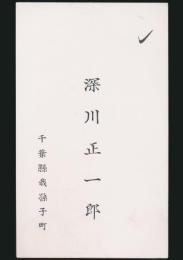 深川正一郎
千葉縣我孫子町